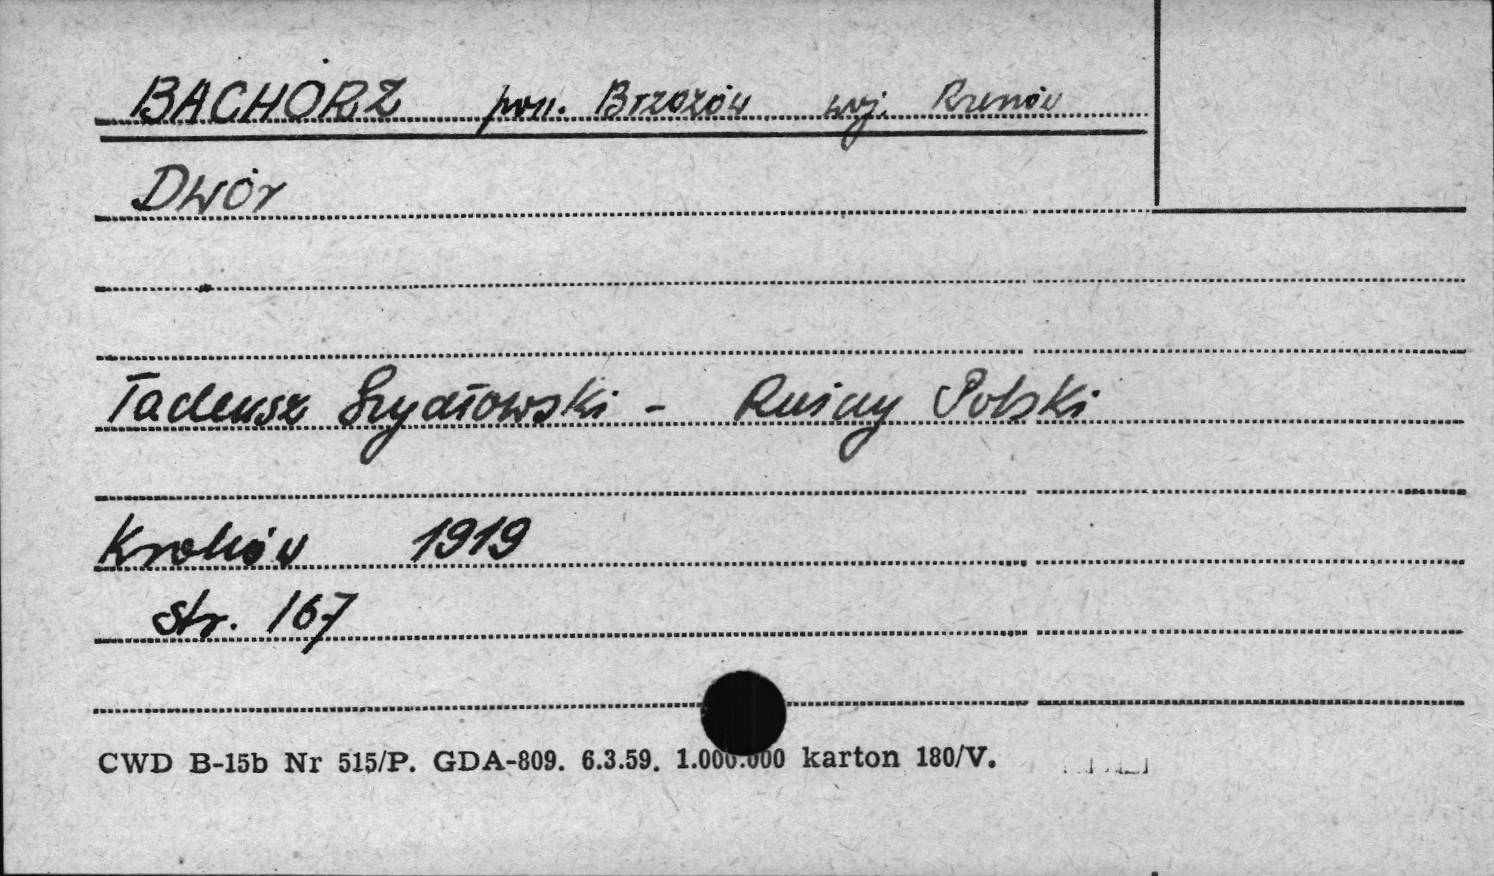 BACHÓRZ pow. Brzozów woj. Rzeszów
Dwór
Tadeusz Szydłowski - Ruiny Polski
Kraków 1919
str. 167
CWD B-15b Nr 515/P. GDA-809. 6.3.59. 1.000.000 karton 180/V.